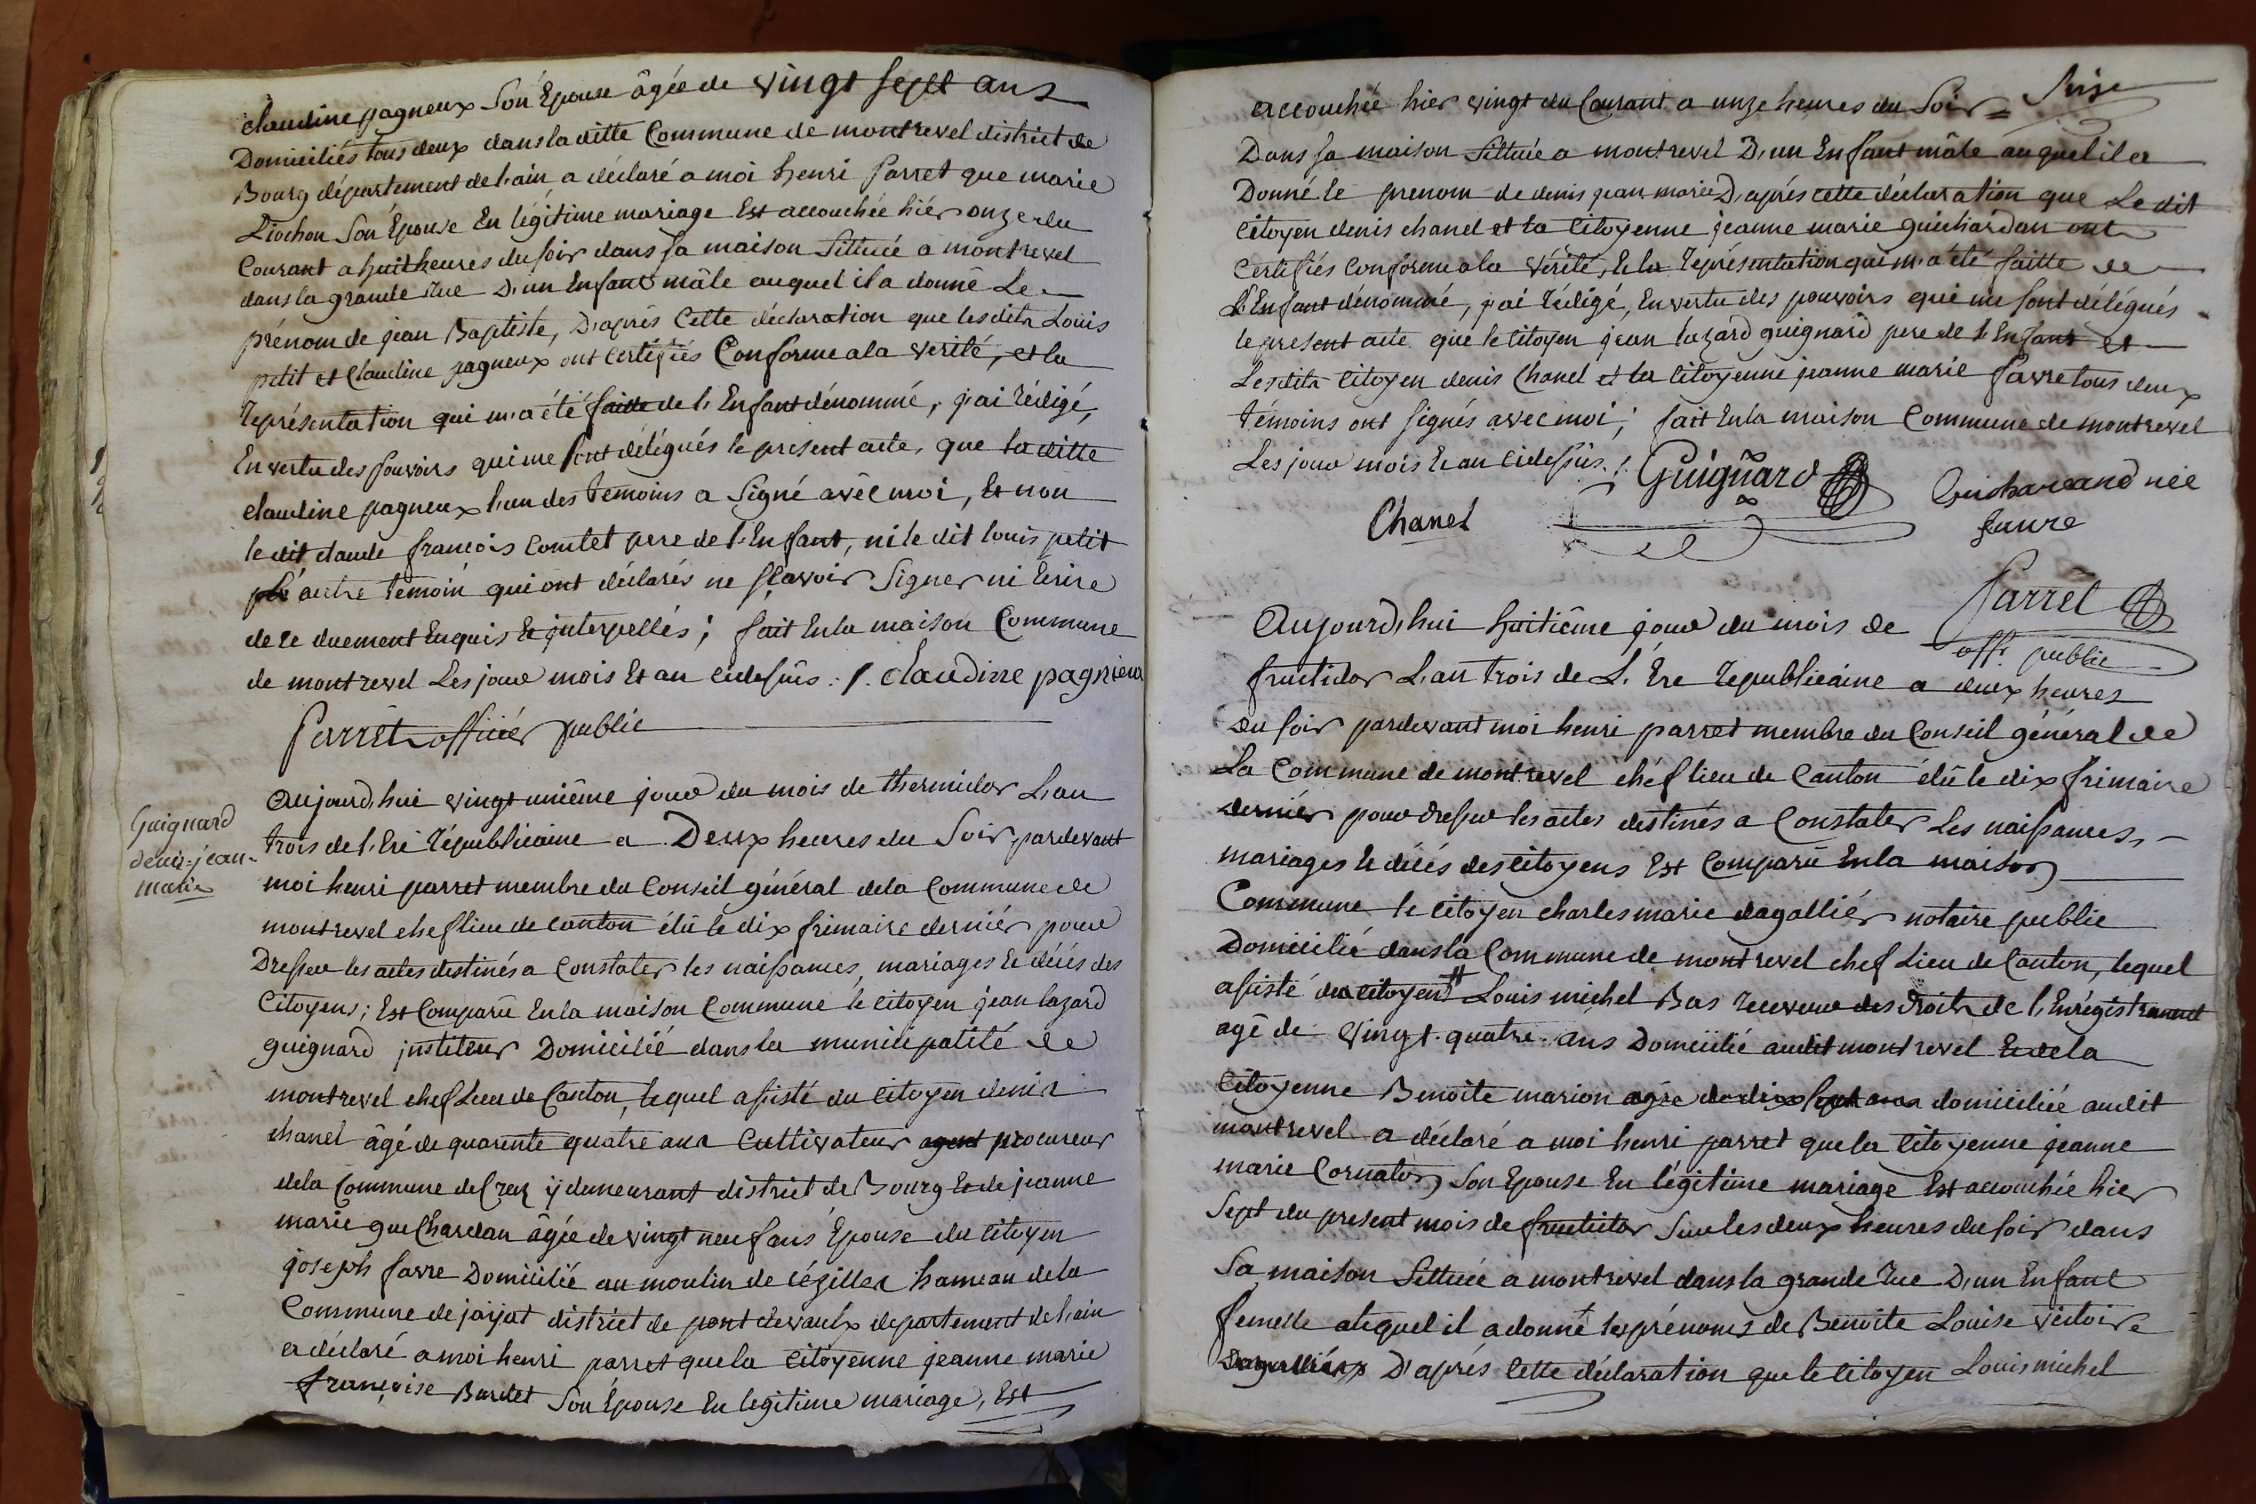 claudine pagneux Son Épouse âgée de vingt sept ans
Domiciliés tous deux dans la ditte Commune de montrevel district de
Bourg département de l'ain a déclaré a moi henri parret que marie
Liochon Son Épouse En légitime mariage Est accouchée hiér onze du
Courant a huit heures du soir dans sa maison Sittuée a montrevel
dans la grande rue D'un Enfant mâle auquel il a donné Le
prénom de jean Baptiste, D'après Cette déclaration que lesdits Louis
petit et Claudine pagneux ont certifiés Conforme a la verité, et la
représentation qui m'a été faitte de l'Enfant dénommé, j'ai rédigé,
En vertu des pouvoirs qui me sont délégués le present acte, que la ditte
claudine pagneux l'un des témoins a Signé avec moi, Et non
le dit claude françois Comtet pere de l'Enfant, ni le dit louis petit
autre témoin qui ont déclarés ne sçavoir Signer ni Ecrire
de ce duement Enquis Et interpellés; fait En la maison Commune
de montrevel Les jour mois Et an cidessus ./. claudine pagneux
Parret officiér public
Guignard
denis-jean-
marie
Aujourd'hui vingt uniême jour du mois de thermidor L'an
trois de l'Ere républicaine a Deux heures du Soir, pardevant
moi henri parret membre du Conseil général de la Commune de
montrevel chef lieu de canton élû le dix frimaire derniér pour
Dresser les actes destinés a Constater les naissances, mariages Et décés des
Citoyens; Est Comparû En la maison Commune le Citoyen jean lazard
guignard institeur Domicilié dans la municipalité de
montrevel chef Lieu de Canton, lequel assisté du Citoyen denis
chanel âgé de quarente quatre ans Cultivateur agent procureur
de la Commune de Cras ÿ demeurant district de Bourg Et de jeanne
marie guichardan âgée de vingt neuf ans Épouse du citoyen
joseph favre Domiciliée au moulin de cézilles hameau de la
Commune de jayat district de pont devaulx departement de l'ain
a déclaré a moi henri parret que la citoyenne jeanne marie
françoise Bardet Son Épouse En legitime mariage, Est
accouchée hier vingt du Courant a unze heures du Soir =
Dans sa maison Sittuée a montrevel D'un Enfant mâle auquel il a
Donné le prenom de denis jean marie D'aprés cette déclaration que Le dit
citoyen denis chanel et la Citoyenne jeanne marie guichardan ont
Certifiés Conforme a la vérité, Et la représentation qui m'a été faitte de
L'Enfant dénommé, j'ai rédigé, En vertu des pouvoirs qui me sont délégués
le present acte que le citoyen jean lazard guignard pere de l'Enfant et
Lesdits citoyen denis Chanel et la citoyenne jeanne marie favre tous deux
témoins ont signés avec moi; fait En la maison Commune de montrevel
Les jour mois Et an cidessus ./. Guignard
Chanel
Guichardand née
faure
Parret
off. public
Aujourd'hui huitiême jour du mois de
fructidor L'an trois de L'Ere republicaine a deux heures
du soir pardevant moi henri parret membre du Conseil général de
La Commune de montrevel chéf lieu de Canton élû le dix frimaire
derniér pour dresser les actes destinés a Constater Les naissances,
mariages Et décés des citoyens Est Comparû En la maison
Commune le citoyen charles marie dagalliér notaire public
Domicilié dans la Commune de montrevel chef Lieu de Canton, lequel
assisté du citoyen # Louis michel Bas receveur des droits de l'Enrégistrement
agé de vingt-quatre ans Domicilié audit montrevel Et de la
citoyenne Benoite marion agée de dix sept ans domiciliée audit
montrevel a déclaré a moi henri parret que la citoyenne jeanne
marie Cornaton Son Epouse En légitime mariage Est accouchée hier
Sept du present mois de fructidor Sur les deux heures du soir dans
Sa maison Sittuée a montrevel dans la grande rue D'un Enfant
femelle auquel il a donné les prénoms de Benoite Louise victoire
D'aprés cette déclaration que le citoyen Louis michel